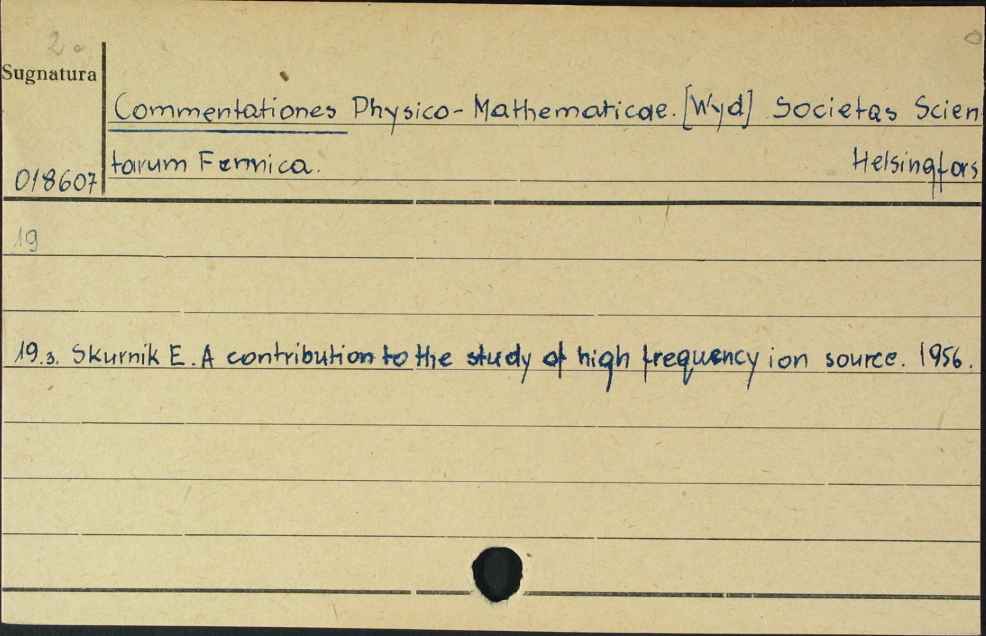 2.
Sugnatura
Commentationes Physico-Mathematicae. [Wyd] Societas Scien
tarum Fennica. Helsingfors
018607
19
19.3. Skurnik E. A contribution to the study of high frequency ion source. 1956.